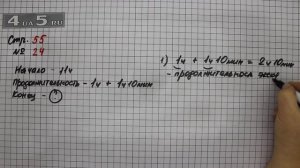 4 GU5.RU
Стр. 55
№ 24
Начало – 11ч
Продолжительность – 1ч + 1ч 10мин
Конец – ?
1) 1ч + 1ч 10мин = 2ч 10мин
– продолжительность